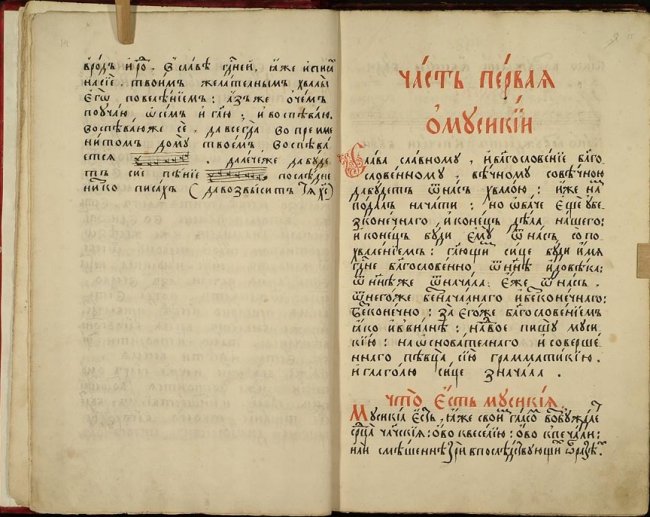 вродъ и рⷪ҇. Ѡ славѣ гдⷭ҇ней, ꙗже и списа
на сїѐ, твоимъ желателнымъ хвалы
єгѡ̀ повелѣнїемъ: азъ же ѡ чемъ
поучаю ѡ семъ и гл҃ю: и воспѣваю.
воспѣваю же сѐ, да всегда во преиме
нитомъ дому твоемъ воспѣва
ется далече же да буде
тъ сїе пѣнїе последне
писахъ (да возвыситъ
ЧА́СТЬ ПЕ́РВАЯ
Ѡ МУСИКІ́И
Слава славному, и благословенїе благо
словенному, вѣчному совѣчною
да будетъ ѿ насъ хвалою: иже на
подалъ начати: но ѡбаче єще ѹ бе
зконечнаго и конецъ дѣла нашего:
и конецъ буди єму ѿ насъ со по
хваленїемъ: гл҃ющїи сице буди имя
гдⷭ҇не благословенно ѿ нн҃ѣ и до вѣка:
ѿ нн҃ѣ же ѿ начала. єже ѿ насъ.
ѿ него же безначалнаго и безконечнаго:
безконечно: за єго же благословенїемъ
ꙗко и в винѣ: на двое пишу муси
кїю: на ѡснователнаго и соверше
ннаго пѣвца сїю грамматикїю.
и глаголю сице з начала.
ЧТО̀ Є҆́СТЬ МУСИКІ́Ѧ
Мусикїа єсть, ꙗже свои гласо возбуждае
срⷣца члч҃скїя: ѡво к веселїю: ѡво к печали:
или смѣшеннѣ